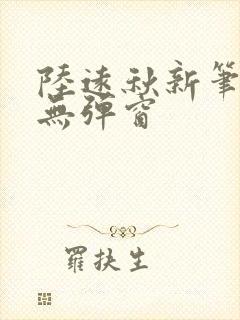 陸遠秋新筆
無彈窗
羅扶生